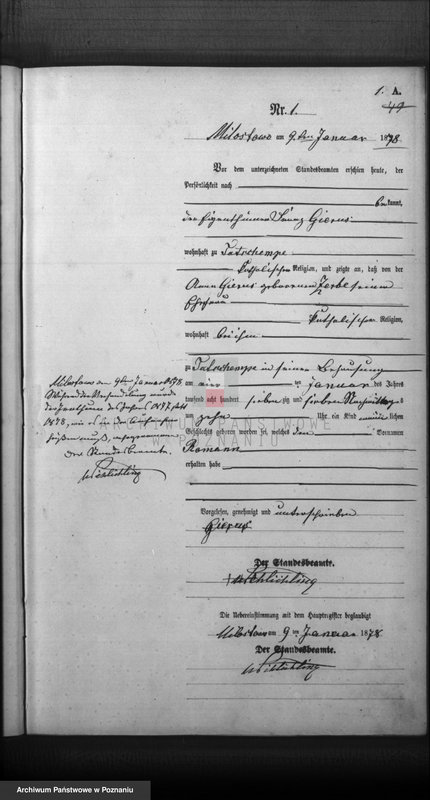 1. A.
49
Nr. 1.
Milostowo am 9ten Januar 1878
Vor dem unterzeichneten Standesbeamten erschien heute, der
Persönlichkeit nach
bekannt,
der Eigenthümer Franz Gierus
wohnhaft zu Tutschempe
katholischer Religion, und zeigte an, daß von der
Anna Gierus geborenen seiner
Ehefrau
katholischer Religion,
wohnhaft bei ihm
zu Tutschempe in seiner Behausung
am vier ten Januar des Jahres
tausend acht hundert siebenzig und sieben Nachmittags
um zehn Uhr ein Kind männlichen
Geschlechts geboren worden sei, welches den Vornamen
Romann
erhalten habe
Milostowo am 9ten Januar 1878.
des Jahres 1877, statt
1878, wie es in der
muß, angenommen.
Der Standesbeamte.
Schlichting
Vorgelesen, genehmigt und unterschrieben
Gierus
Der Standesbeamte.
Schlichting
Die Uebereinstimmung mit dem Hauptregister beglaubigt
Milostowo am 9ten Januar 1878
Der Standesbeamte.
Schlichting
ARCHIWUM PAŃSTWOWE
W POZNANIU
Archiwum Państwowe w Poznaniu